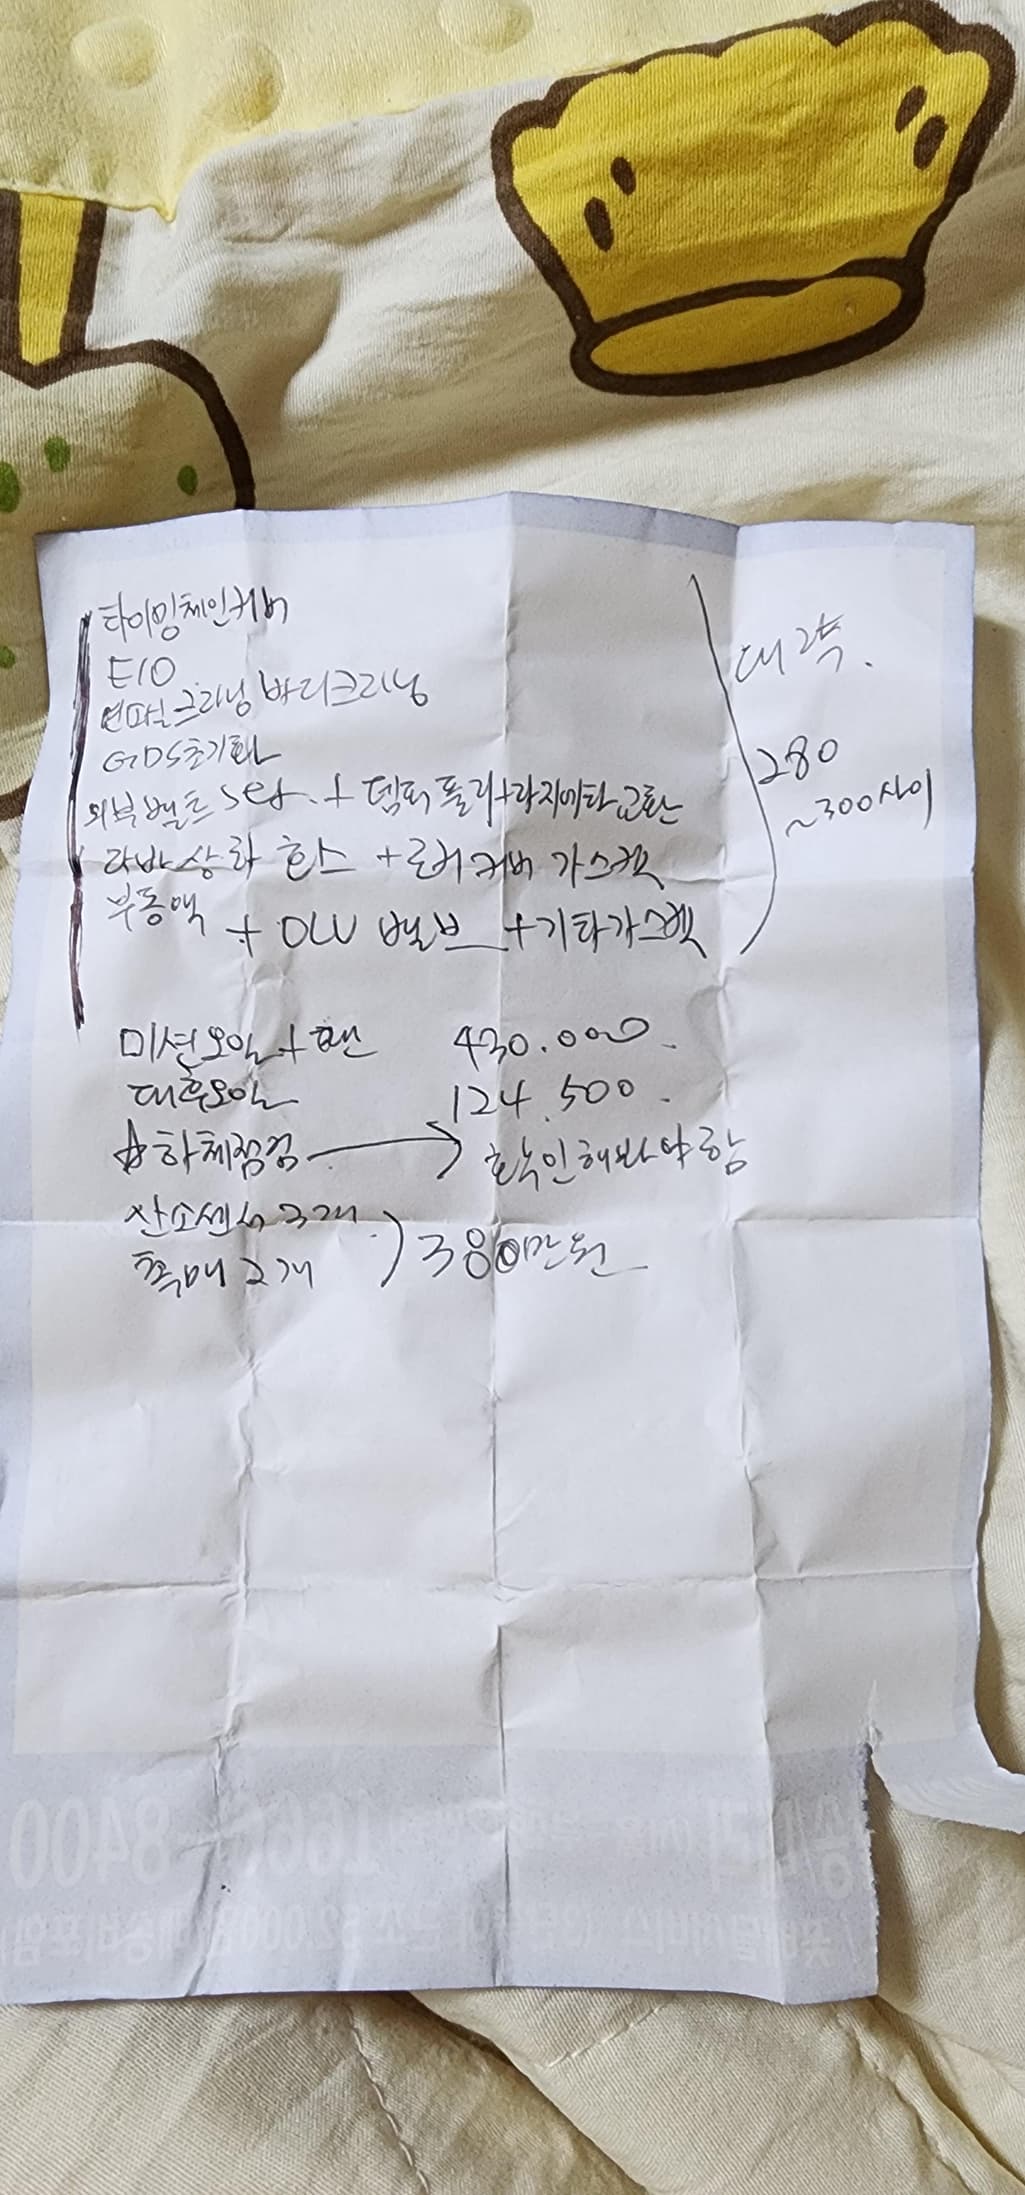 타이밍체인커버
E/O
연파실크리닝 바디크리닝
GDS초기화
외부벨트 set + 댐퍼풀리+라지에타교환
라바상하 호스 + 로커커버 가스켓
부동액 + OCV 밸브 + 기타가스켓
대략.
280
~300사이
미션오일+팬 430.000
데후오일 124.500
☆하체점검 → 확인해봐야함
산소센서 3개
촉매 2개 ) 380만원
8400